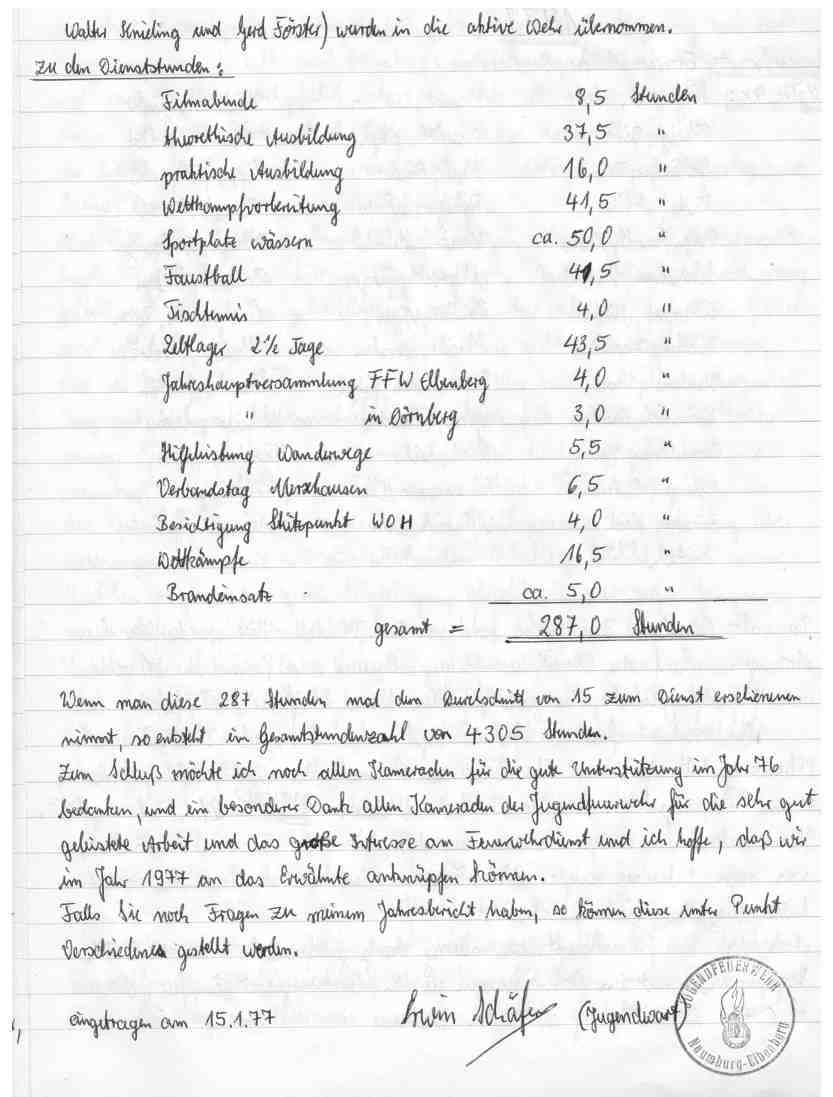 Walter Knieling und Gerd Förster) wurden in die aktive Wehr übernommen.
Zu den Dienststunden:
Filmabende 8,5 Stunden
theorethische Ausbildung 37,5 "
praktische Ausbildung 16,0 "
Wettkampfvorbereitung 41,5 "
Sportplatz wässern ca. 50,0 "
Faustball 41,5 "
Tischtennis 4,0 "
Zeltlager 2 1/2 Tage 43,5 "
Jahreshauptversammlung FFW Elbenberg 4,0 "
" in Dörnberg 3,0 "
Hilfeleistung Wanderwege 5,5 "
Verbandstag Merxhausen 6,5 "
Besichtigung Stützpunkt WOH 4,0 "
Wettkämpfe 16,5 "
Brandeinsatz ca. 5,0 "
gesamt = 287,0 Stunden
Wenn man diese 287 Stunden mal dem Durchschnitt von 15 zum Dienst erschienenen
nimmt, so entsteht ein Gesamtstundenzahl von 4305 Stunden.
Zum Schluß möchte ich noch allen Kameraden für die gute Unterstützung im Jahr 76
bedanken, und ein besonderer Dank allen Kameraden der Jugendfeuerwehr für die sehr gut
geleistete Arbeit und das große Interesse am Feuerwehrdienst und ich hoffe, daß wir
im Jahr 1977 an das Erwähnte anknüpfen können.
Falls Sie noch Fragen zu meinem Jahresbericht haben, so können diese unter Punkt
Verschiedenes gestellt werden.
eingetragen am 15.1.77 Erwin Schäfer (Jugendwart)
JUGENDFEUERWEHR
Naumburg-Elbenberg